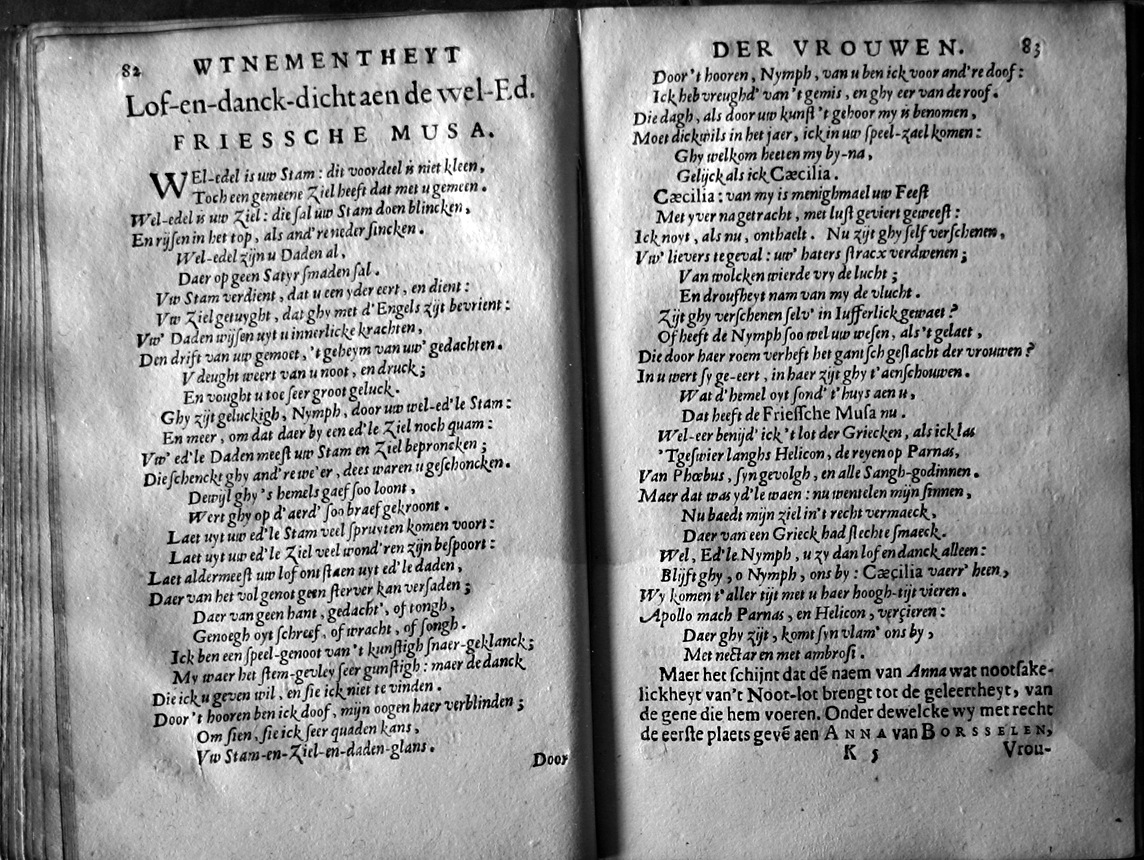 82 WTNEMENTHEYT
Lof-en-danck-dicht aen de wel-Ed.
FRIESSCHE MUSA.
WEl-edel is uw Stam: dit voordeel is niet kleen,
Toch een gemeene Ziel heeft dat met u gemeen.
Wel-edel is uw Ziel: die sal uw Stam doen blincken,
En rijsen in het top, als and're neder sincken.
Wel-edel zijn u Daden al,
Daer op geen Satyr smaden sal.
Vw Stam verdient, dat u een yder eert, en dient:
Vw Ziel getuyght, dat ghy met d'Engels zijt bevrient:
Vw' Daden wijsen uyt u innerlicke krachten,
Den drift van uw gemoet, 't geheym van uw' gedachten.
V deught weert van u noot, en druck;
En vought u toe seer groot geluck.
Ghy zijt geluckigh, Nymph, door uw wel-ed'le Stam:
En meer, om dat daer by een ed'le Ziel noch quam:
Vw' ed'le Daden meest uw Stam en Ziel bepronken;
Die schenckt ghy and're we'er, dees waren u geschoncken.
Dewijl ghy 's hemels gaef soo loont,
Wert ghy op d'aerd' soo braef gekroont.
Laet uyt uw ed'le Stam veel spruyten komen voort:
Laet uyt uw ed'le Ziel veel wond'ren zijn bespoort:
Laet aldermeest uw lof ontstaen uyt ed'le daden,
Daer van het vol genot geen sterver kan versaden;
Daer van geen hant, gedacht', of tongh,
Genoegh oyt schreef, of wracht, of songh.
Ick ben een speel-genoot van 't kunstigh snaer-geklanck;
My waer het stem-gevley seer gunstigh: maer de danck
Die ick u geven wil, en sie ick niet te vinden.
Door 't hooren ben ick doof, mijn oogen haer verblinden;
Om sien, sie ick seer quaden kans,
Vw Stam-en-Ziel-en-daden-glans.
Door
DER VROUWEN. 83
Door 't hooren, Nymph, van u ben ick voor and're doof:
Ick heb vreughd' van 't gemis, en ghy eer van de roof.
Die dagh, als door uw kunst 't gehoor my is benomen,
Moet dickwils in het jaer, ick in uw speel-zael komen:
Ghy welkom heeten my by-na,
Gelijck als ick Cæcilia.
Cæcilia: van my is menighmael uw Feest
Met yver na getracht, met lust geviert geweest:
Ick noyt, als nu, onthaelt. Nu zijt ghy self verschenen,
Vw' lievers te geval: uw' haters stracx verdwenen;
Van wolcken wierde vry de lucht;
En droufheyt nam van my de vlucht.
Zijt ghy verschenen selv' in Iufferlick gewaet?
Of heeft de Nymph soo wel uw wesen, als 't gelaet,
Die door haer roem verheft het gantsch geslacht der vrouwen?
In u wert sy ge-eert, in haer zijt ghy t'aenschouwen.
Wat d'hemel oyt sond' t'huys aen u,
Dat heeft de Friessche Musa nu.
Wel-eer benijd' ick 't lot der Griecken, als ick las
'Tgeswier langhs Helicon, de reyen op Parnas,
Van Phœbus, syn gevolgh, en alle Sangh-godinnen.
Maer dat was yd'le waen: nu wentelen mijn sinnen,
Nu baedt mijn ziel in't recht vermaeck,
Daer van een Grieck had slechte smaeck.
Wel, Ed'le Nymph, u zy dan lof en danck alleen:
Blijft ghy, o Nymph, ons by: Cæcilia vaerr' heen,
Wy komen t'aller tijt met u haer hoogh-tijt vieren.
Apollo mach Parnas, en Helicon, verçieren:
Daer ghy zijt, komt syn vlam' ons by,
Met nectar en met ambrosi.
Maer het schijnt dat dē naem van Anna wat nootsake-
lickheyt van't Noot-lot brengt tot de geleertheyt, van
de gene die hem voeren. Onder dewelcke wy met recht
de eerste plaets gevē aen ANNA van BORSSELEN,
K 5 Vrou-